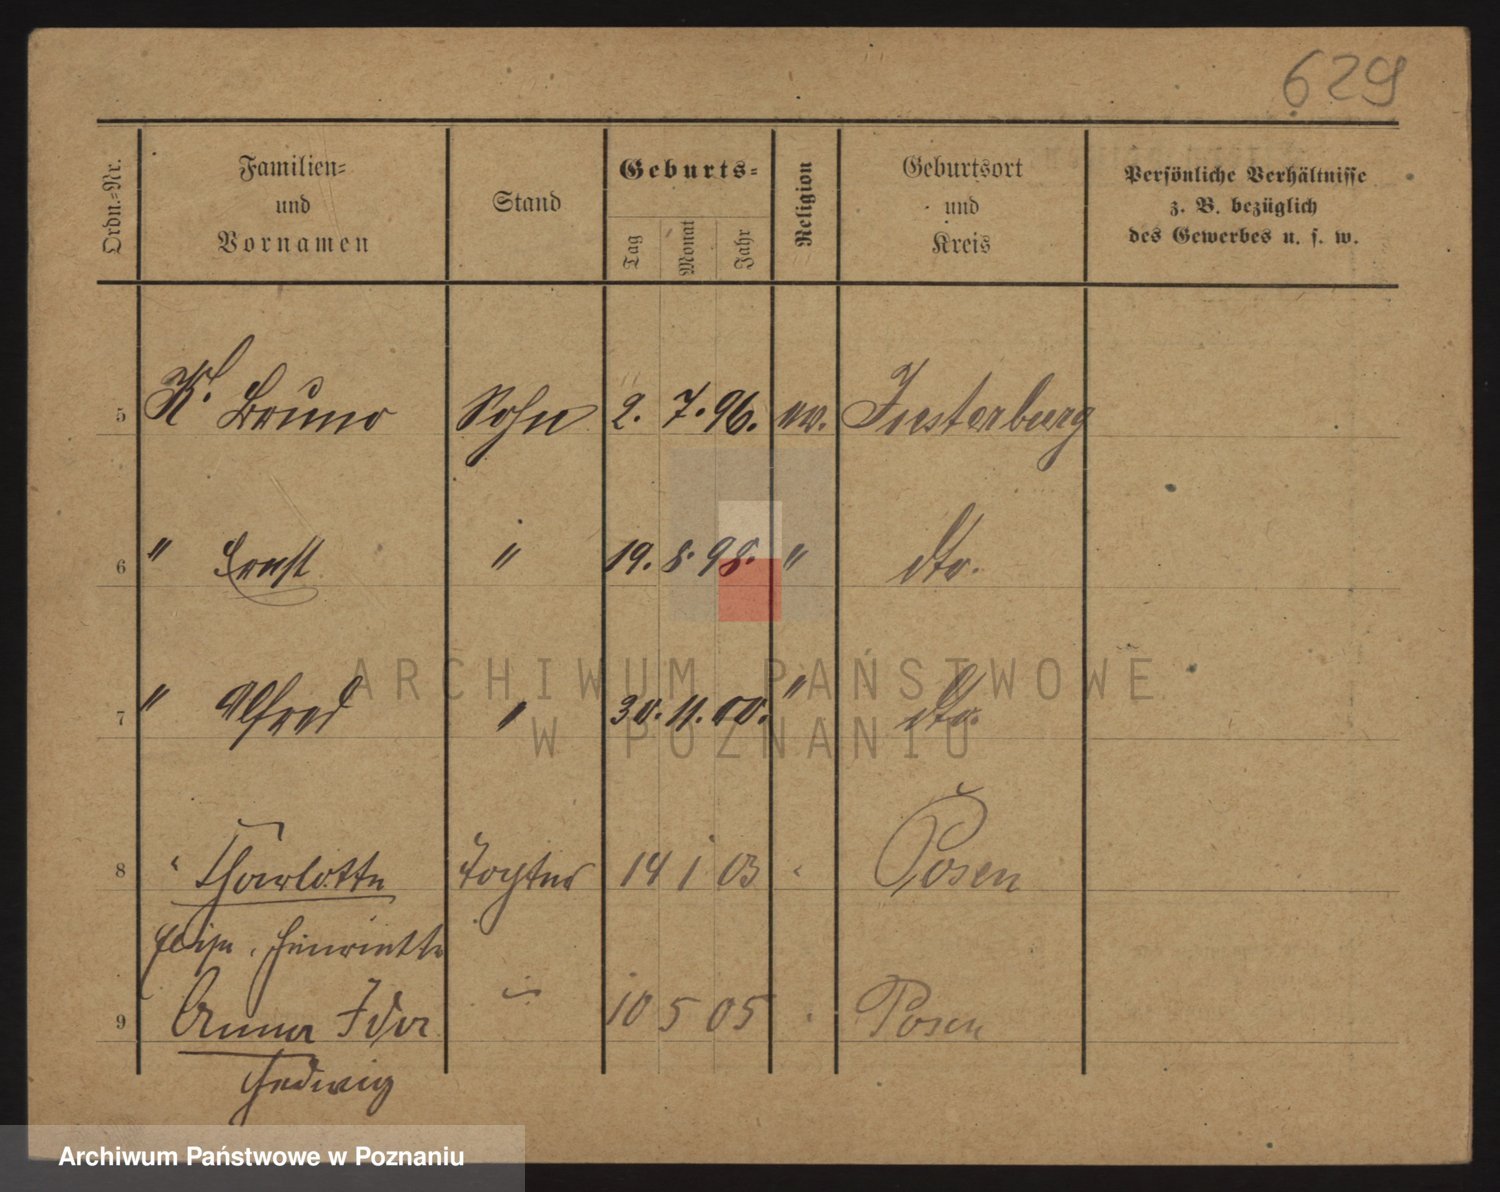 629
Ordn.-Nr.
Familien-
und
Vornamen
Stand
Geburts-
Tag
Monat
Jahr
Religion
Geburtsort
und
Kreis
Persönliche Verhältnisse
z. B. bezüglich
des Gewerbes u. s. w.
5 K. Bruno Sohn 2. 7. 96. ev. Insterburg
6 " Ernst " 19. 8. 98. " dto.
7 " Alfred " 30. 11. 00. " dto.
8 " Charlotte Tochter 14 1 03 " Posen
Henriette
9 Anna Ida " 10 5 05 " Posen
Hedwig
ARCHIWUM PAŃSTWOWE
W POZNANIU
Archiwum Państwowe w Poznaniu